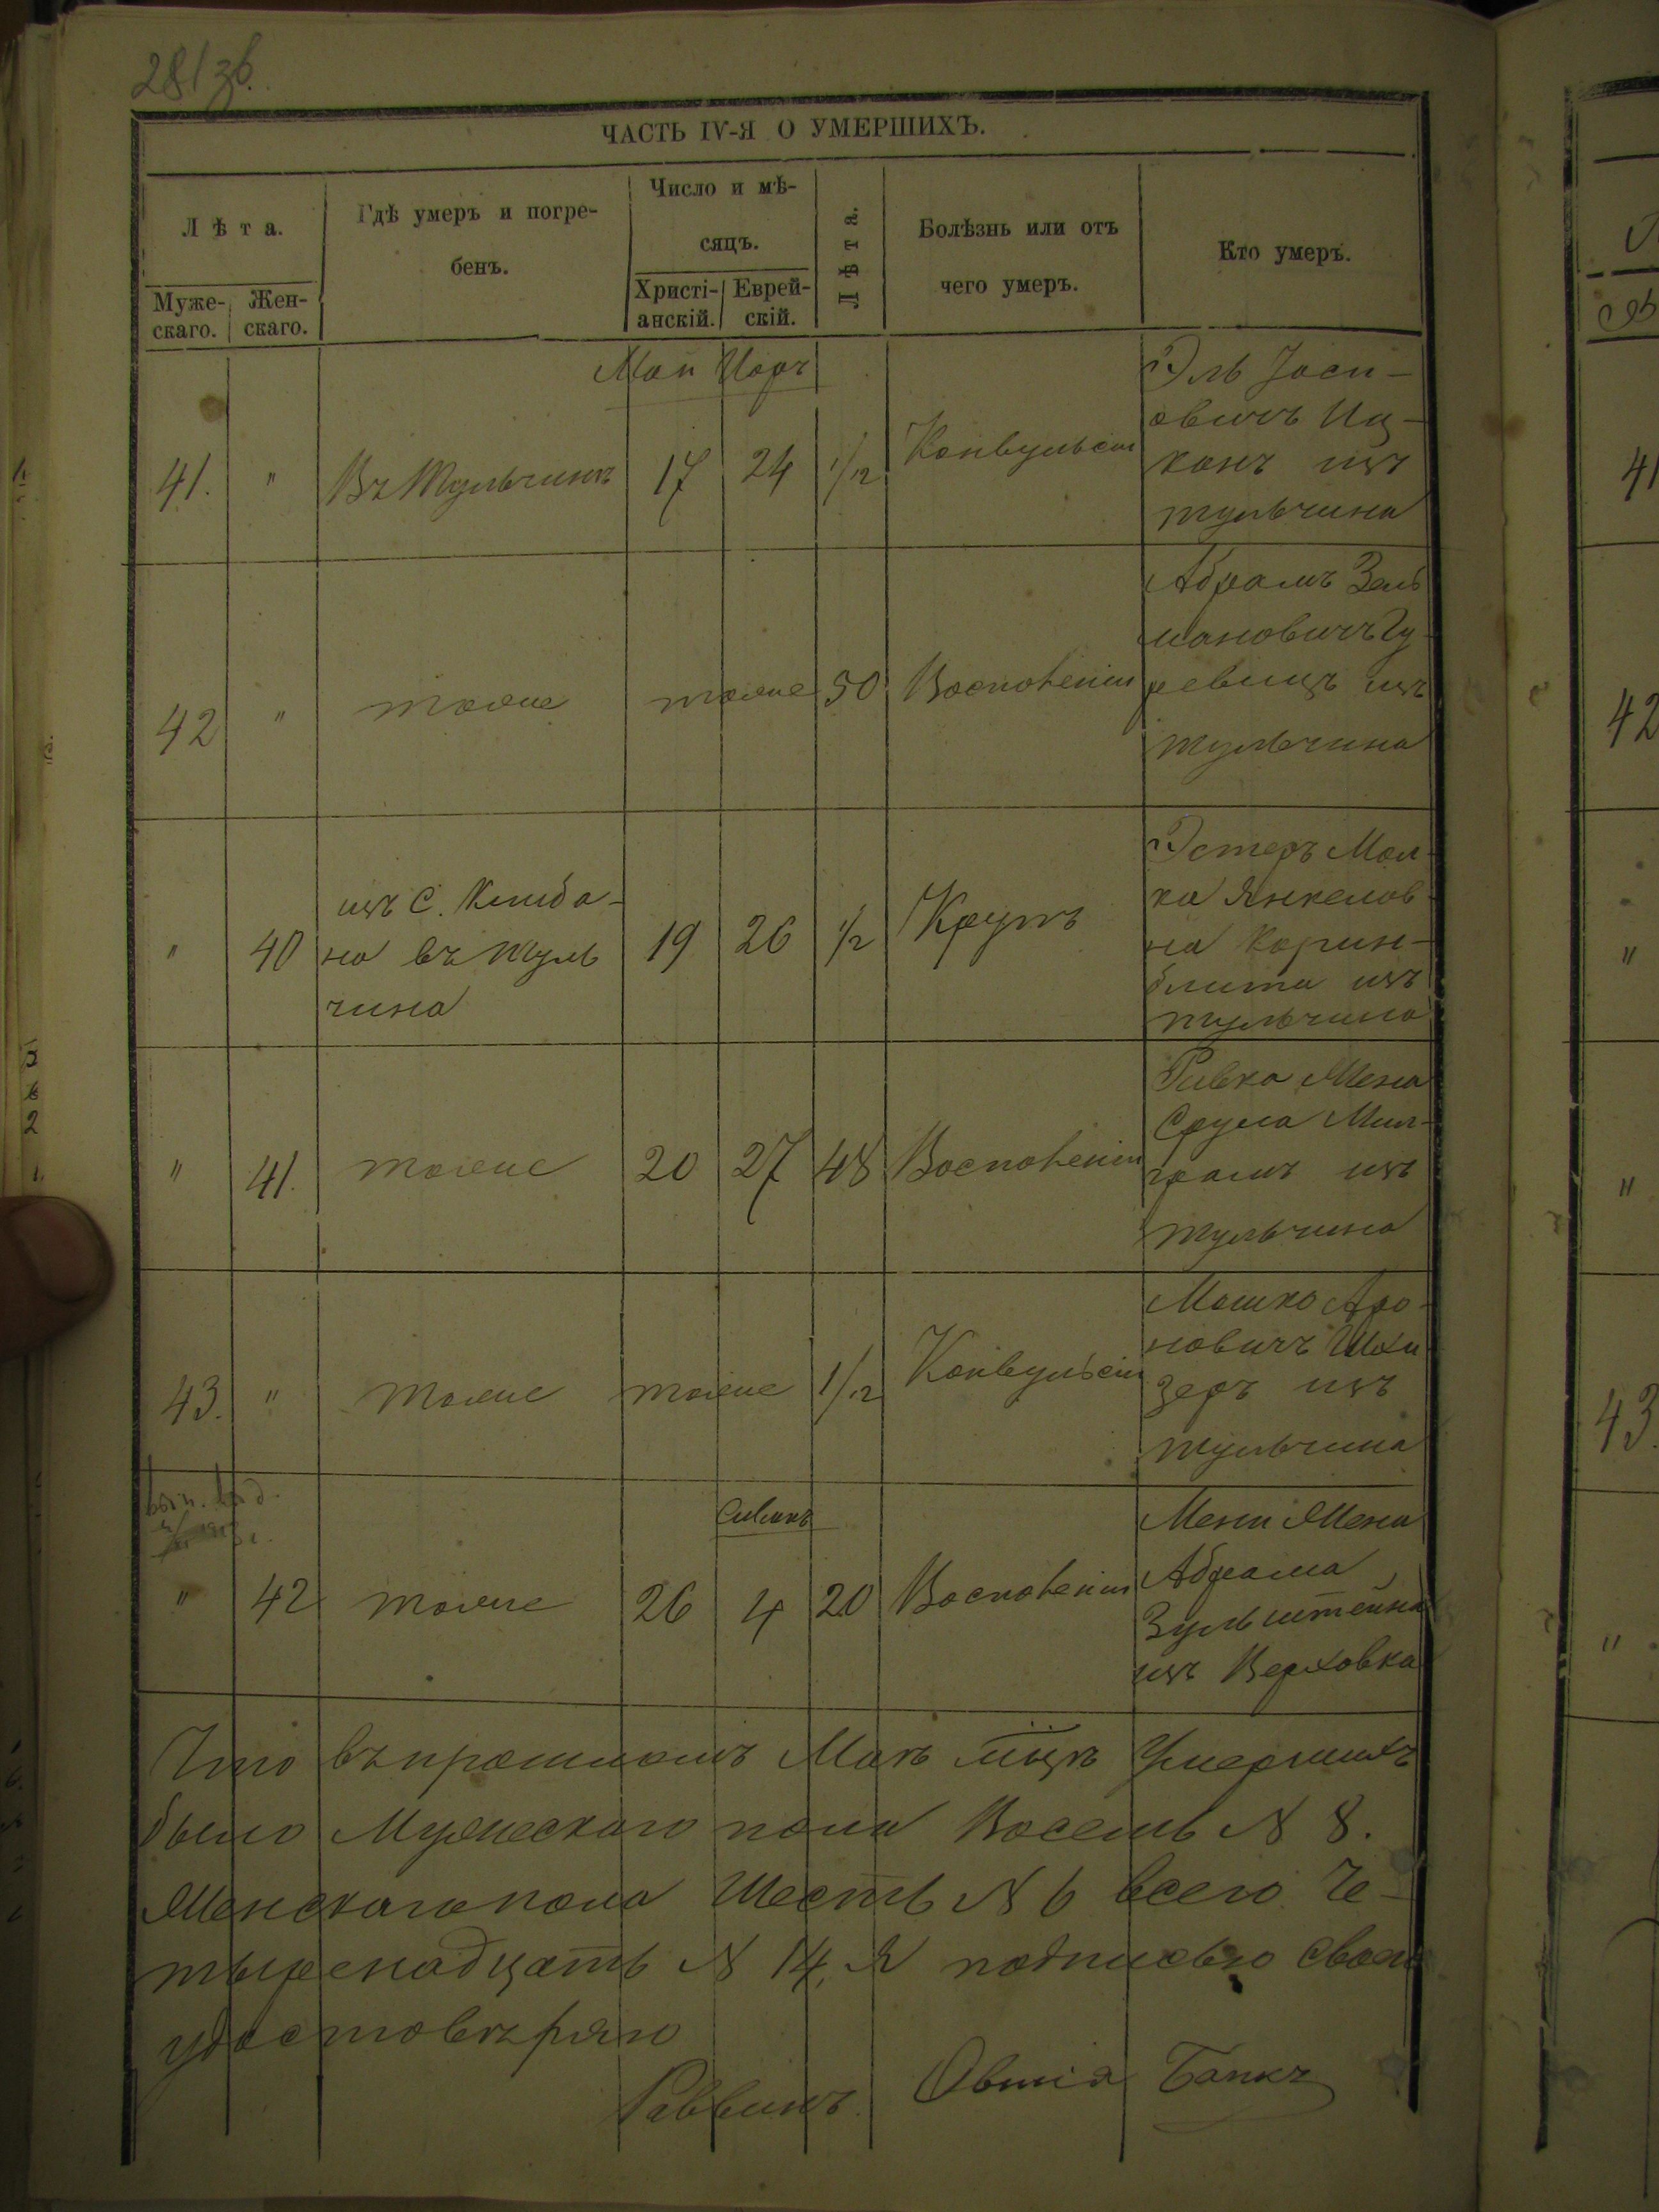 28/зб.
ЧАСТЬ IV-Я О УМЕРШИХЪ.
Лѣта.
Муже-
скаго.
Жен-
скаго.
Гдѣ умеръ и погре-
бенъ.
Число и мѣ-
сяцъ.
Христі-
анскій.
Еврей-
скій.
Лѣта.
Болѣзнь или отъ
чего умеръ.
Кто умеръ.
Май Іяръ
41. " Въ Тульчинѣ 17 24 1/12 Конвульсіи
Эль Іоси-
овичъ Иц-
канъ изъ
Тульчина
42 " тоже тоже 50 Воспаленіи
Абрамъ Зель
мановичъ Гу-
ревицъ изъ
Тульчина
" 40
изъ С. Клиба-
на въ Туль
чина
19 26 1/2 Крупъ
Эстеръ Мал-
ка Янкелов-
на Корин-
блита изъ
Тульчина
" 41. тоже 20 27 48 Воспаленіи
Ривка Жена
Срула Мил-
грамъ изъ
Тульчина
43. " тоже тоже 1/12 Конвульсіи
Мошко Аро-
новичъ
зеръ изъ
Тульчина
Сиванъ
" 42 тоже 26 4 20 Воспаленіи
Мени Жена
Абрама
Зульштейна
изъ Верховка
Что въ прошломъ Маѣ мцѣ Умершихъ
было Мужескаго пола Восемь N 8.
Женскаго пола Шесть N 6 всего Че-
тыренадцать N 14, Я подписью своею
удостовѣряю
Раввинъ Овшія Банкъ
41
42
"
"
43
"